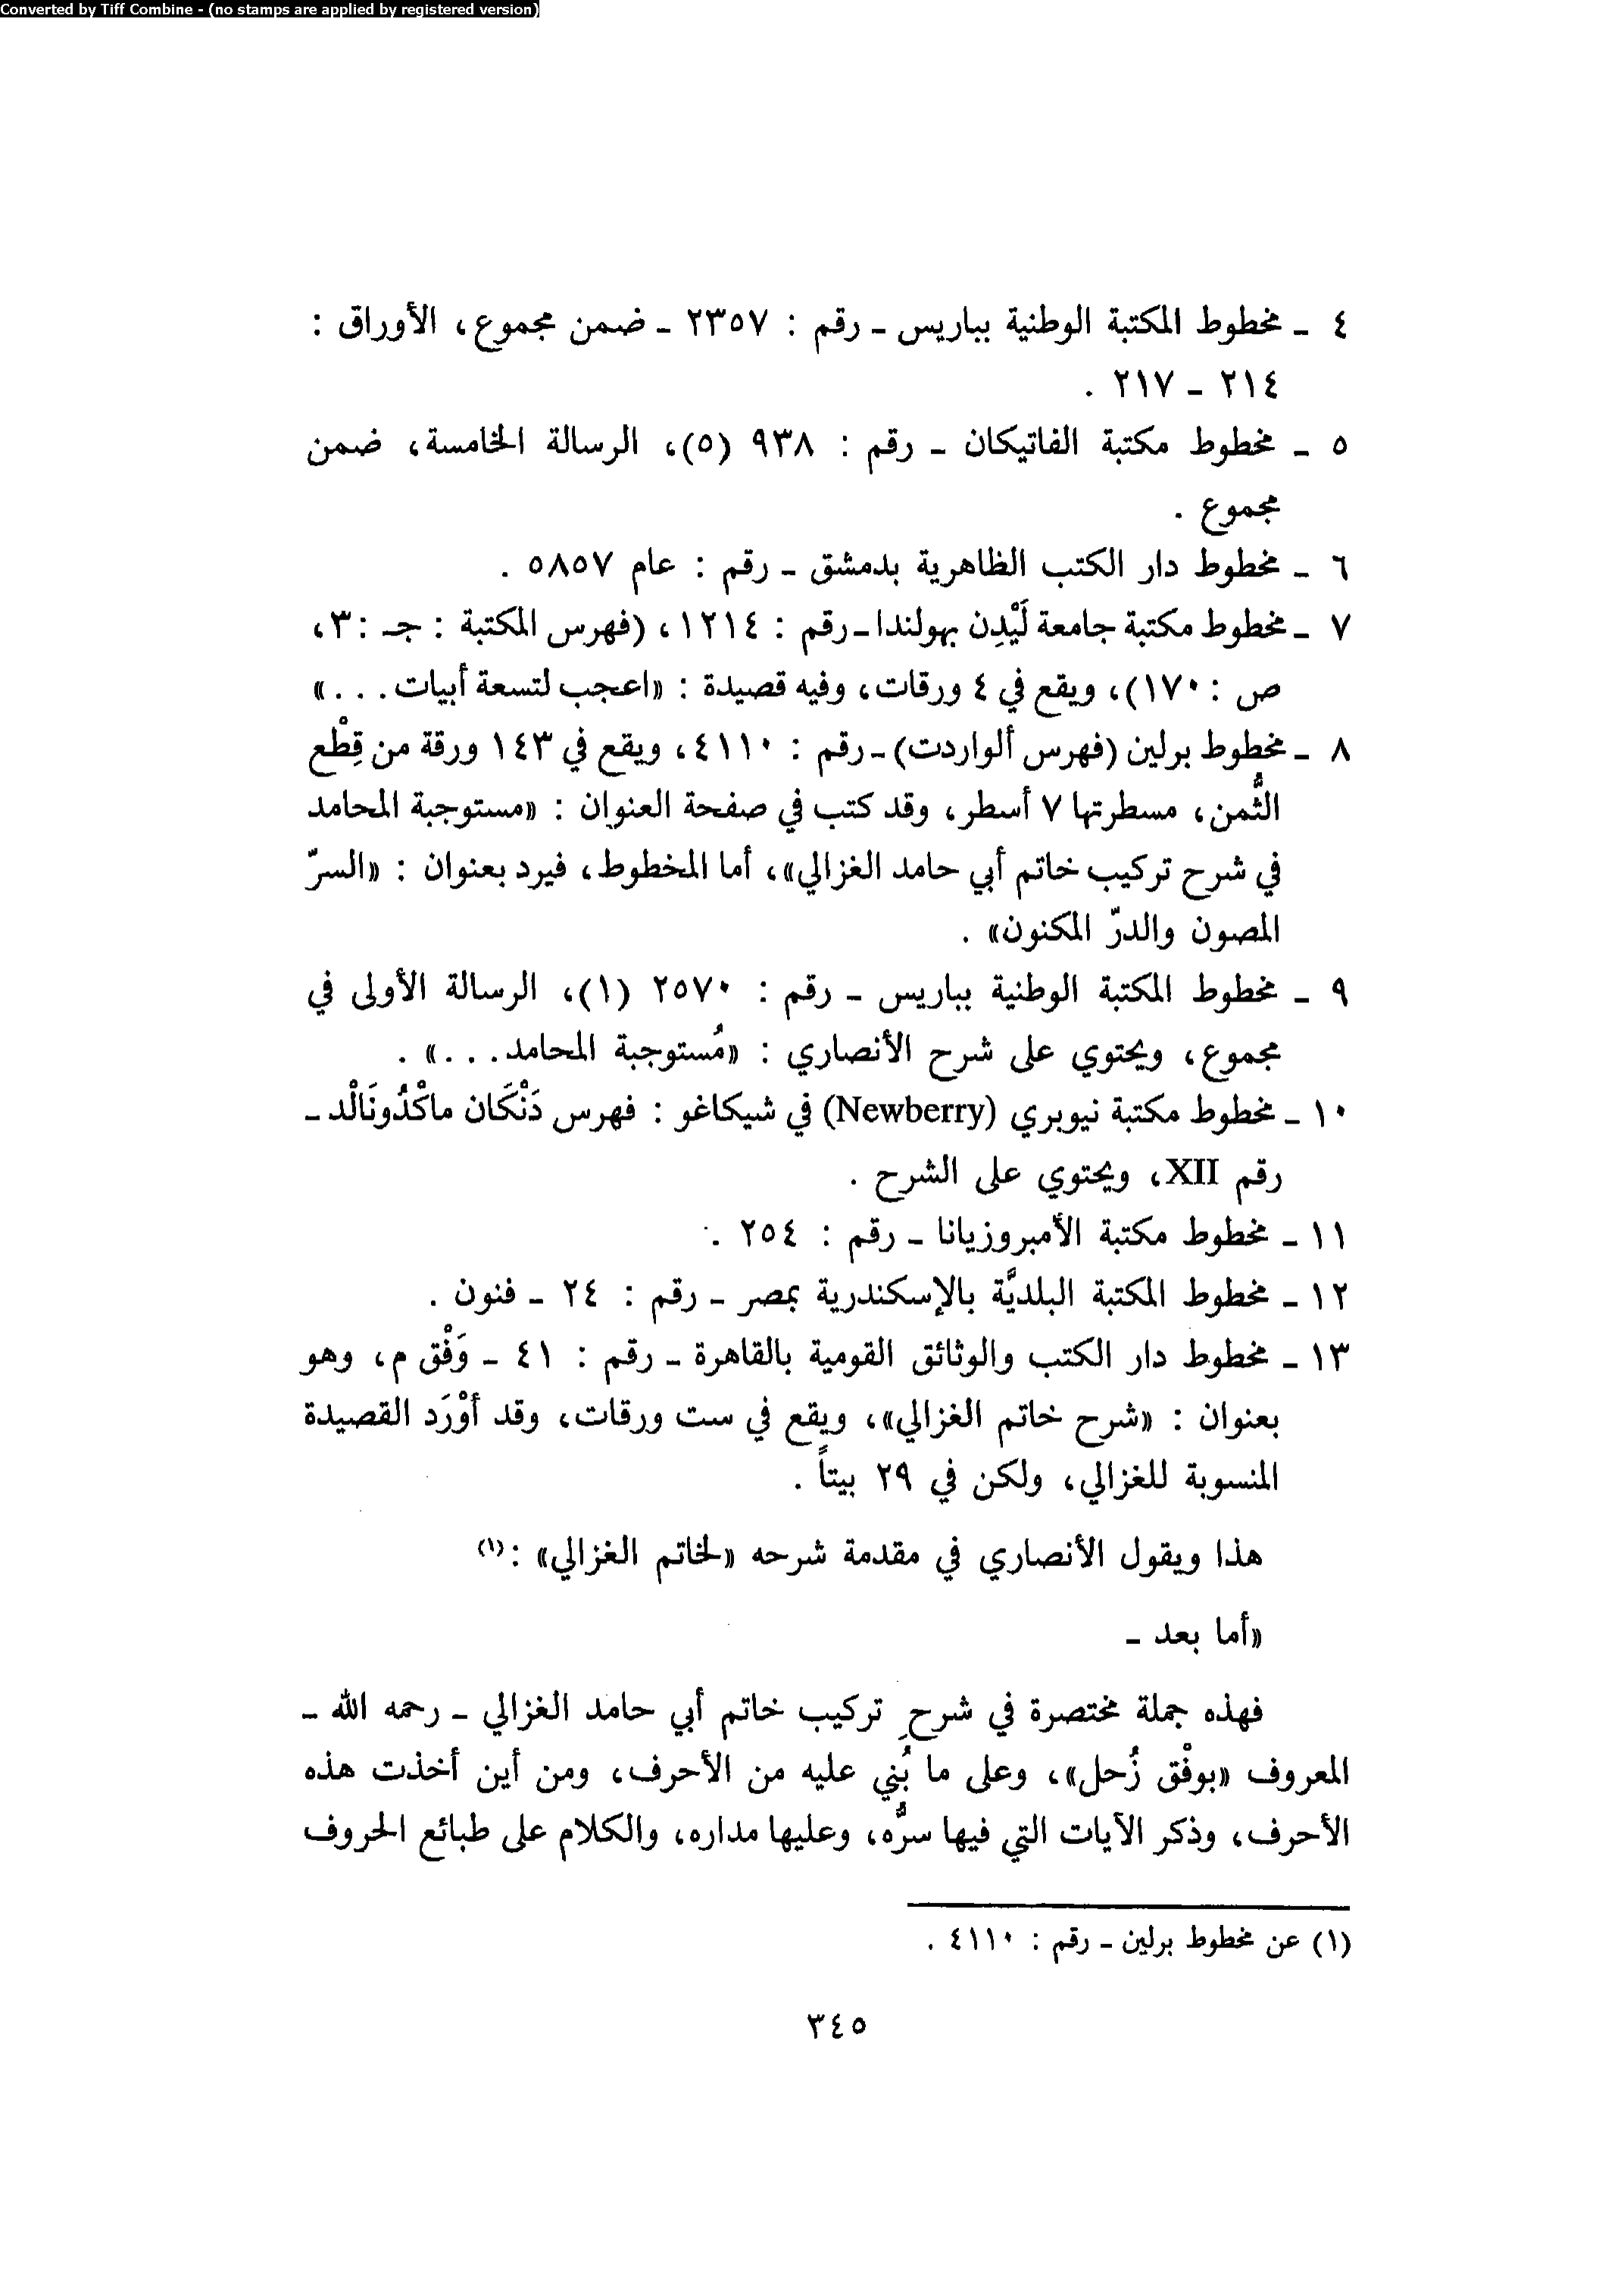 Converted by Tiff Combine - (no stamps are applied by registered version)
٤ - مخطوط المكتبة الوطنية بباريس - رقم : ٢٣٥٧ - ضمن مجموع، الأوراق :
٢١٤ - ٢١٧ .
٥ - مخطوط مكتبة الفاتيكان - رقم : ٩٣٨ (٥)، الرسالة الخامسة، ضمن
مجموع .
٦ - مخطوط دار الكتب الظاهرية بدمشق - رقم : عام ٥٨٥٧ .
٧ - مخطوط مكتبة جامعة لَيْدِن بهولندا - رقم : ١٢١٤، (فهرس المكتبة : جـ :٣،
ص : ١٧٠)، ويقع في ٤ ورقات، وفيه قصيدة : «اعجب لتسعة أبيات. . .»
٨ - مخطوط برلين (فهرس ألواردت) - رقم : ٤١١٠، ويقع في ١٤٣ ورقة من قِطْع
الثُّمن، مسطرتها ٧ أسطر، وقد كتب في صفحة العنوان : «مستوجبة المحامد
في شرح تركيب خاتم أبي حامد الغزالي»، أما المخطوط، فيرد بعنوان : «السرّ
المصون والدرّ المكنون» .
٩ - مخطوط المكتبة الوطنية بباريس - رقم : ٢٥٧٠ (١)، الرسالة الأولى في
مجموع، ويحتوي على شرح الأنصاري : «مُستوجبة المحامد. . .» .
١٠ - مخطوط مكتبة نيوبري (Newberry) في شيكاغو : فهرس دَنْكَان ماكْدُونَالْد -
رقم XII، ويحتوي على الشرح .
١١ - مخطوط مكتبة الأمبروزيانا - رقم : ٢٥٤ .
١٢ - مخطوط المكتبة البلديَّة بالإسكندرية بمصر - رقم : ٢٤ - فنون .
١٣ - مخطوط دار الكتب والوثائق القومية بالقاهرة - رقم : ٤١ - وَفْق م، وهو
بعنوان : «شرح خاتم الغزالي»، ويقع في ست ورقات، وقد أوْرَد القصيدة
المنسوبة للغزالي، ولكن في ٢٩ بيتاً .
هذا ويقول الأنصاري في مقدمة شرحه «لخاتم الغزالي» :(١)
«أما بعد -
فهذه جملة مختصرة في شرحِ تركيب خاتم أبي حامد الغزالي - رحمه الله -
المعروف «بوفْق زُحل»، وعلى ما بُني عليه من الأحرف، ومن أين أخذت هذه
الأحرف، وذكر الآيات التي فيها سرُّه، وعليها مداره، والكلام على طبائع الحروف
(١) عن مخطوط برلين - رقم : ٤١١٠ .
٣٤٥